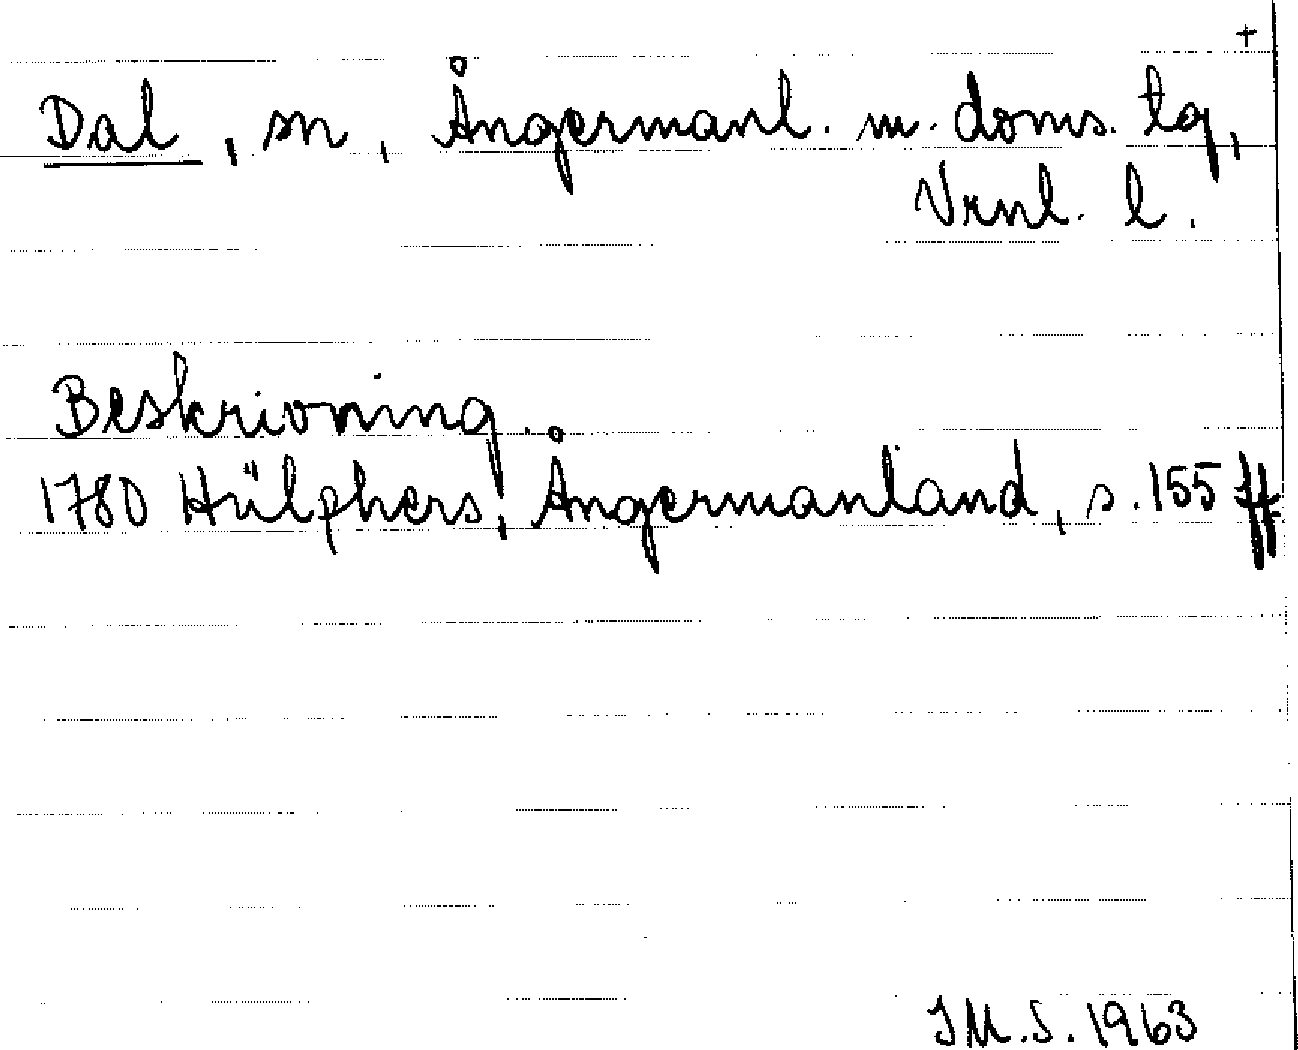 +
Dal, sn, Ångermanl. m. doms. tg,
Vrnl. l.
Beskrivning.
1780 Hülphers, Ångermanland, s. 155 ff
JM.S. 1963